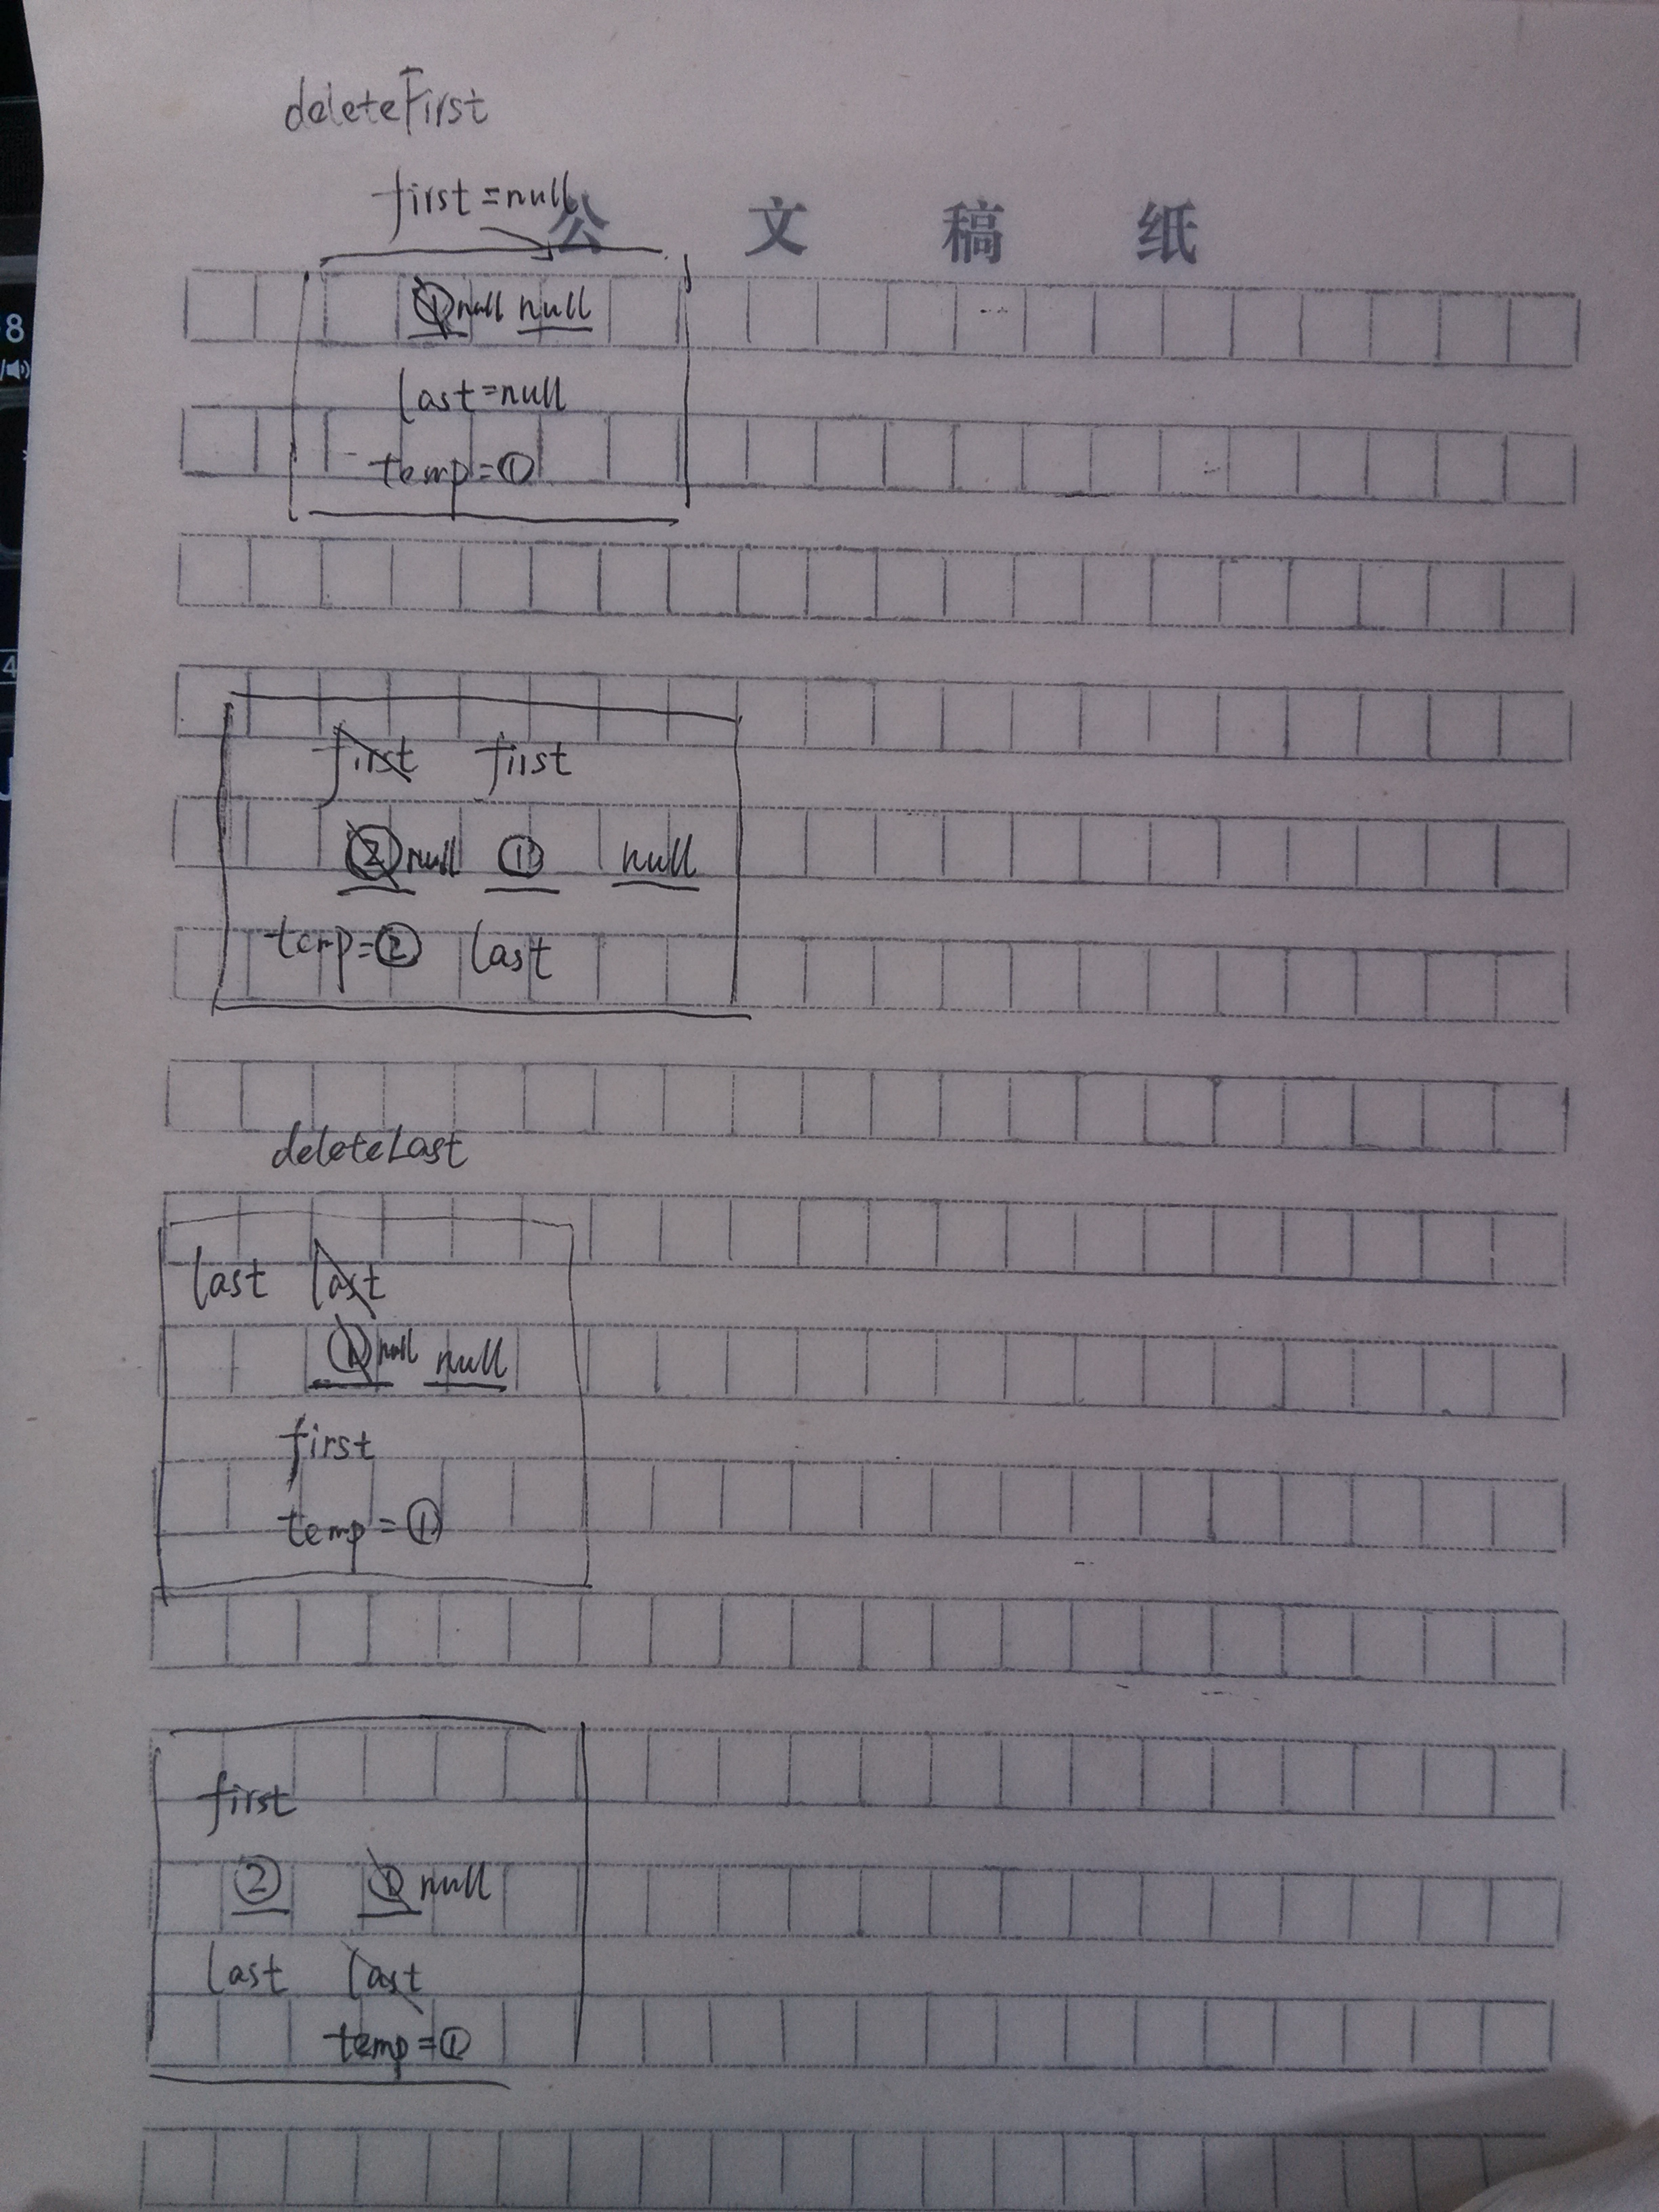 deleteFirst
first=null
公文稿纸
① null null
last=null
temp=①
first first
② null ① null
temp=② last
deleteLast
last last
① null null
first
temp=①
first
② ① null
last last
temp=①
8
4